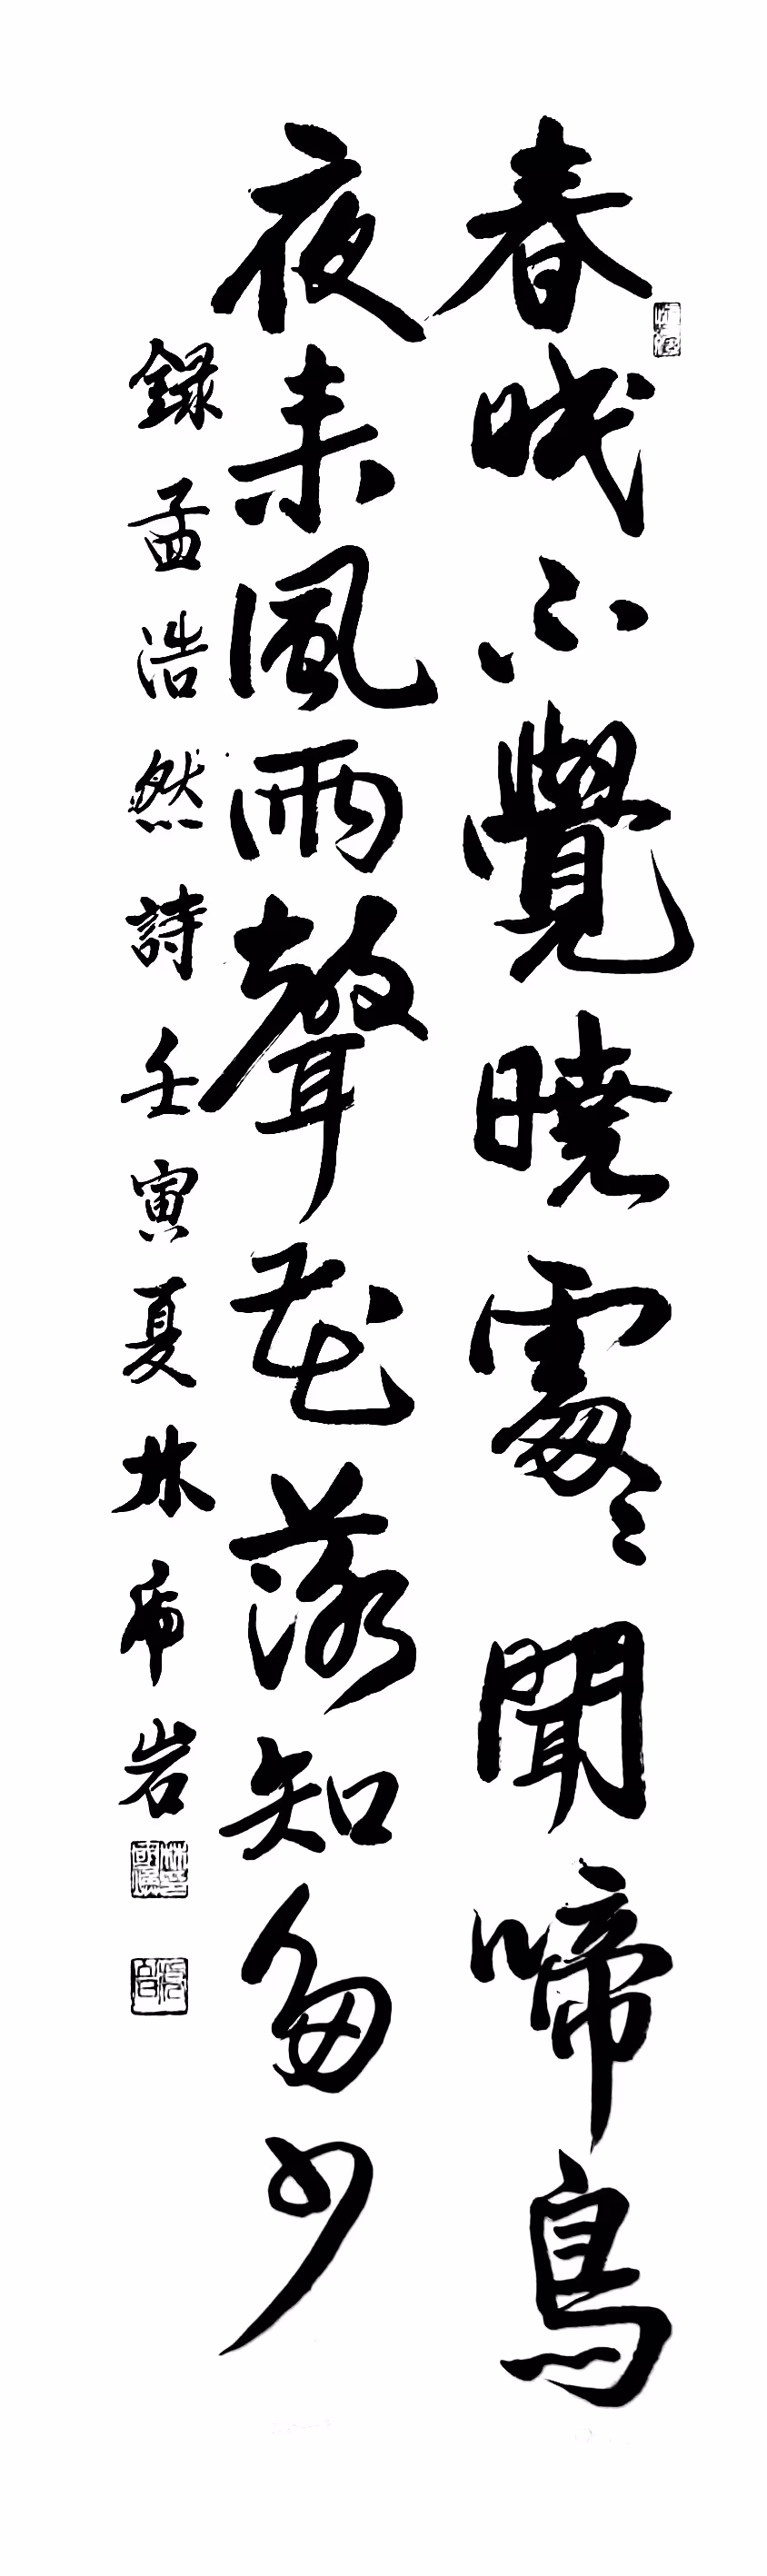 春眠不覺曉處處聞啼鳥
夜来風雨聲花落知多少
録孟浩然詩壬寅夏林希岩